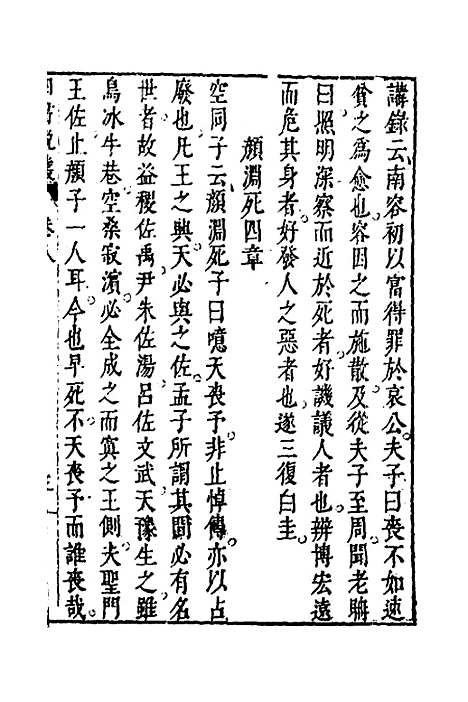 講錄云南容初以富得罪於哀公夫子曰喪不如速
貧之為愈也容因之而施散及從夫子至周聞老聃
曰照明深察而近於死者好譏議人者也辨博宏遠
而危其身者好發人之惡者也遂三復白圭
顏淵死四章
空同子云顏淵死子曰噫天喪予非止悼傳亦以占
廢也凡王之興天必與之佐孟子所謂其間必有名
世者故益稷佐禹尹朱佐湯呂佐文武天豫生之雖
鳥冰牛巷空桑寂濱必全成之而寘之王側夫聖門
王佐止顏子一人耳今也早死不天喪予而誰喪哉
卷八